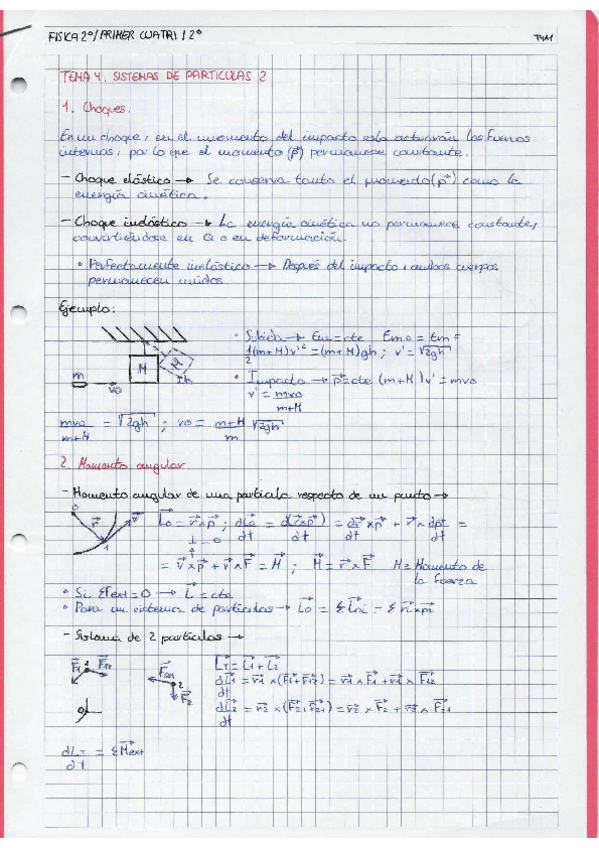 FISICA 2º/PRIMER CUATRI / 2º
TEMA 4. SISTEMAS DE PARTICULAS 2
1. Choques.
En un choque, en el momento del impacto solo actuarán las fuerzas
internas, por lo que el momento (p⃗) permanece constante.
- Choque elástico → Se conserva tanto el momento (p⃗) como la
energía cinética.
- Choque inelástico → La energía cinética no permanece constante,
convirtiéndose en Q o en deformación.
• Perfectamente inelástico → Después del impacto, ambos cuerpos
permanecen unidos.
Ejemplo:
• Subida → Em = cte Emo = Emf
1/2 (m+M)v'² = (m+M)gh ; v' = √2gh
m vo M M h
• Impacto → p⃗ = cte (m+M)v' = mvo
v' = mvo/m+M
mvo/m+M = √2gh ; vo = m+M/m √2gh
2. Momento angular
- Momento angular de una partícula respecto de un punto →
L⃗o = r⃗ x p⃗ ; dL⃗o/dt = d(r⃗ x p⃗)/dt = dr⃗/dt x p⃗ + r⃗ x dp⃗/dt =
= v⃗ x p⃗ + r⃗ x F⃗ = M⃗ ; M⃗ = r⃗ x F⃗ M = Momento de
la fuerza
• Si ΣFext = 0 → L⃗ = cte
• Para un sistema de partículas → L⃗o = ΣL⃗oi = Σr⃗i x p⃗i
- Sistema de 2 partículas →
F⃗1 F⃗12
L⃗T = L⃗1 + L⃗2
dL⃗1/dt = r⃗1 x (F⃗1 + F⃗12) = r⃗1 x F⃗1 + r⃗1 x F⃗12
F⃗21 2 F⃗2
dL⃗2/dt = r⃗2 x (F⃗2, F⃗21) = r⃗2 x F⃗2 + r⃗2 x F⃗21
dLT/dt = ΣM⃗ext